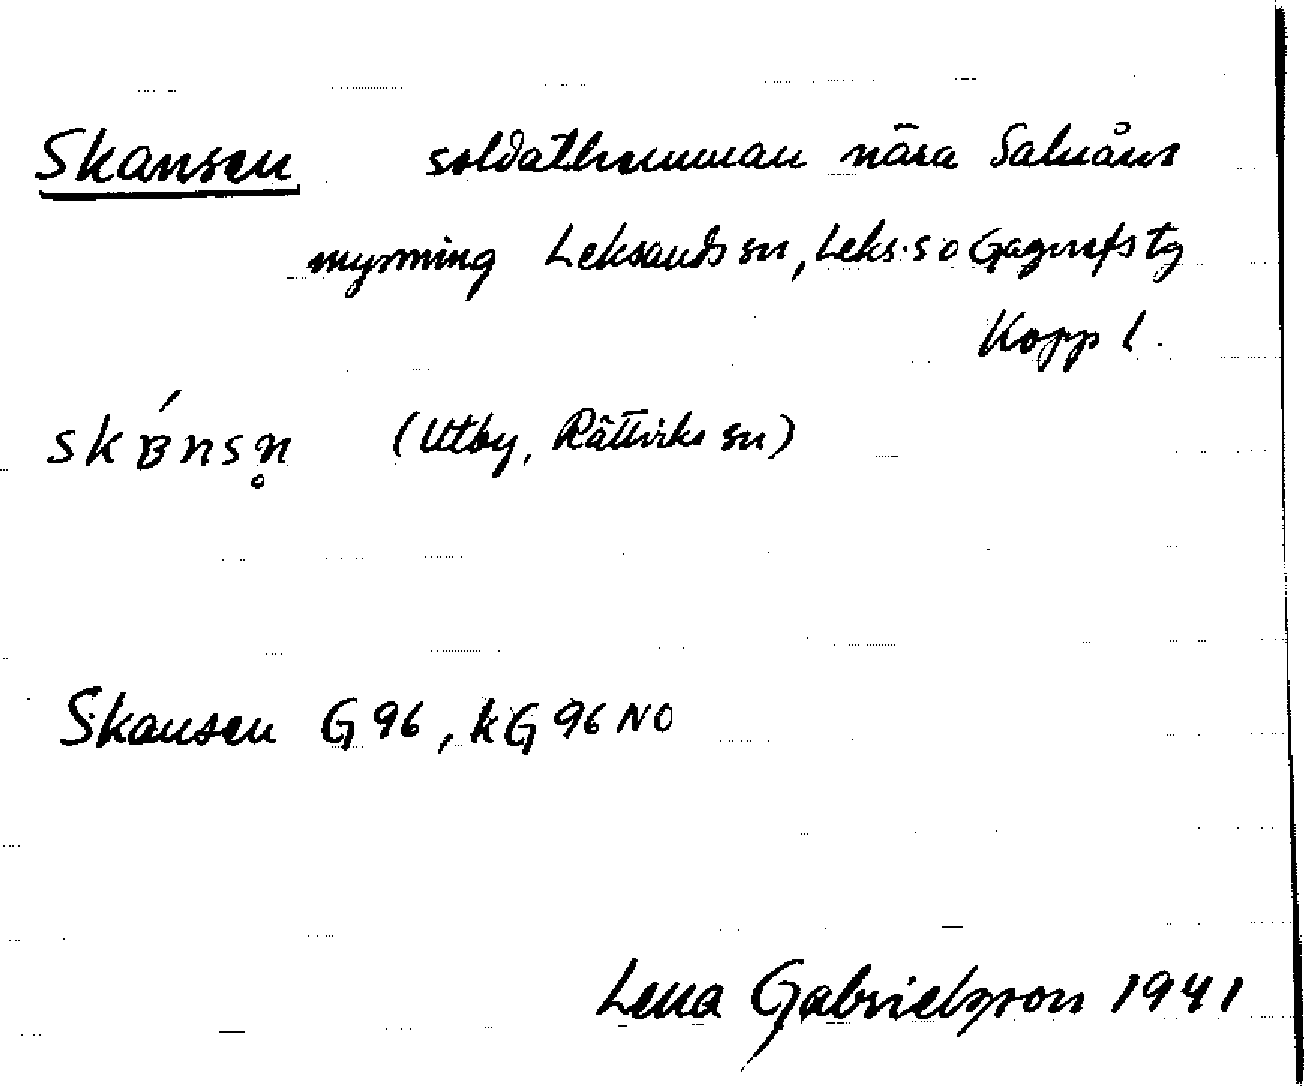 Skansen soldathemman nära Saluåns
mynning Leksands sn, Leks. s o Gagnefs tg
Kopp l.
skɒ́nsn̥ (Utby, Rättviks sn)
Skansen G 96, kG 96 NO
Lena Gabrielsson 1941